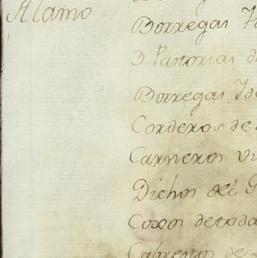 Alamo
Borregas
3 Pastorias d
Borregas Id
Corderos de
Carneros vi
Dichos del G
Coxos de toda
Cabrettos de